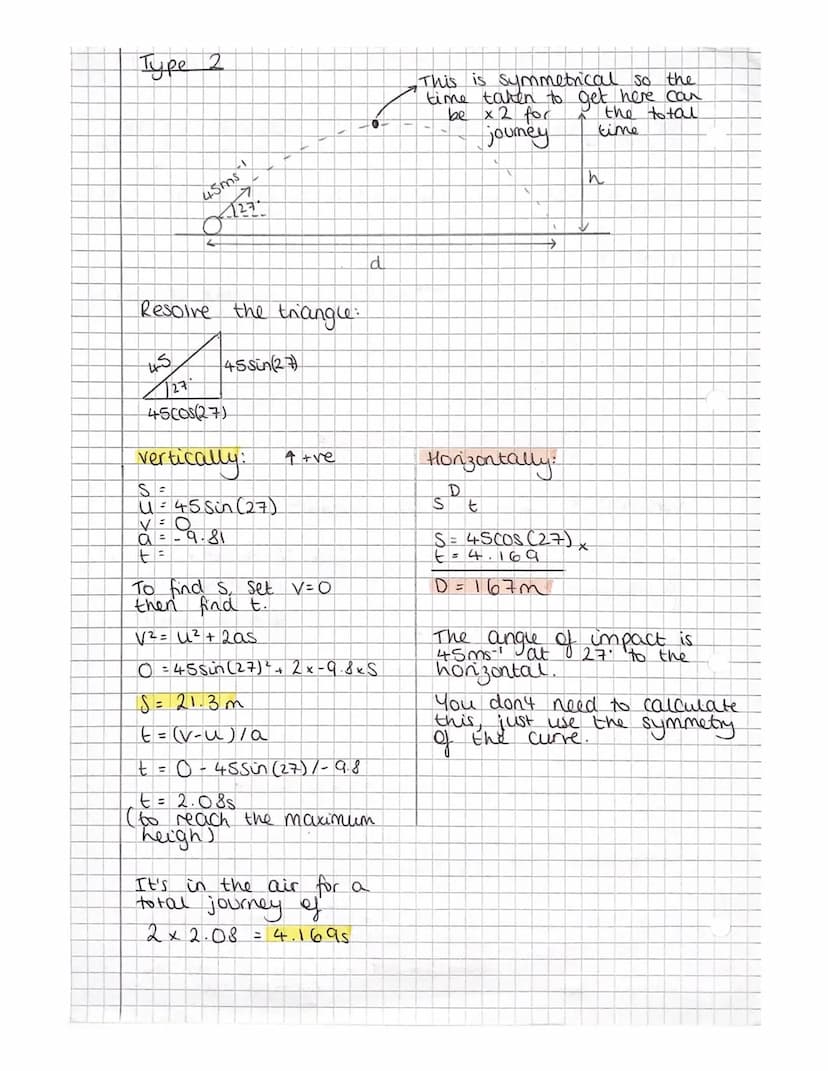 Type 2
This is symmetrical so the
time taken to get here can
be x 2 for the total
journey time
45ms⁻¹
27°
h
d
Resolve the triangle:
45
45sin(27)
27°
45cos(27)
Vertically: ↑ +ve
S =
u = 45sin(27)
v = 0
a = -9.81
t =
To find s, set v=0
then find t.
v² = u² + 2as
0 = 45sin(27)² + 2 x -9.8 x S
S = 21.3m
t = (v-u)/a
t = 0 - 45sin(27)/-9.8
t = 2.08s
(to reach the maximum
heigh)
It's in the air for a
total journey of
2 x 2.08 = 4.169s
Horizontally:
D
S t
S = 45cos(27) x
t = 4.169
D = 167m
The angle of impact is
45ms⁻¹ at 27° to the
horizontal.
You don't need to calculate
this, just use the symmetry
of the curve.